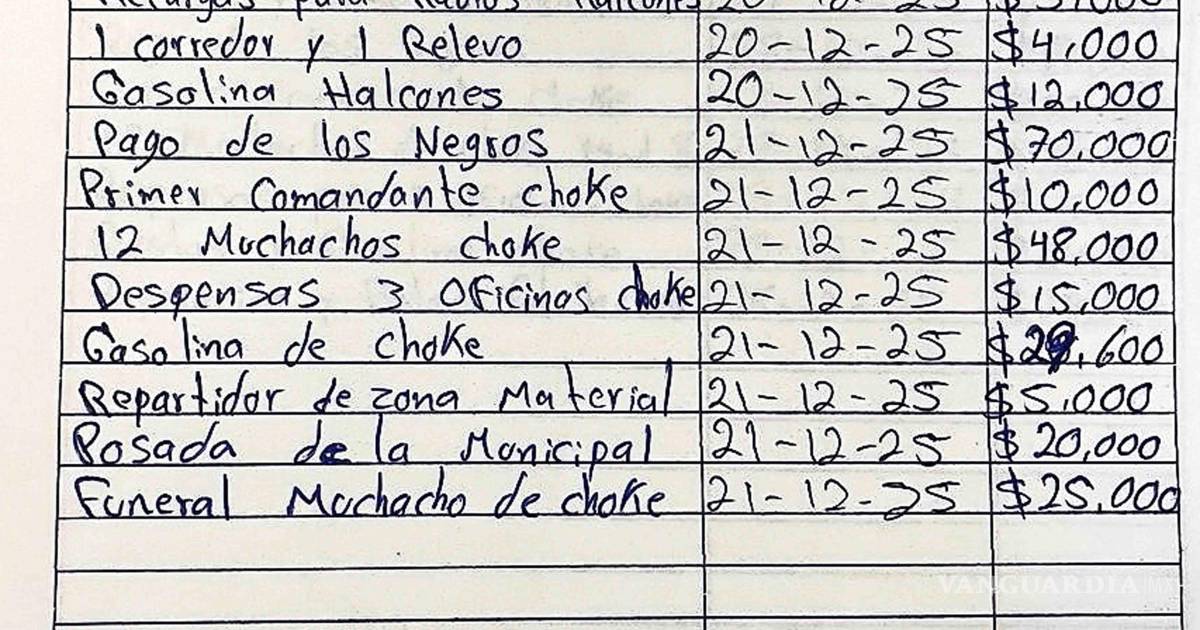 para Radios Halcones 20-12-25
1 corredor y 1 Relevo 20-12-25 $4,000
Gasolina Halcones 20-12-25 $12,000
Pago de los Negros 21-12-25 $70,000
Primer Comandante choke 21-12-25 $10,000
12 Muchachos choke 21-12-25 $48,000
Despensas 3 Oficinas choke 21-12-25 $15,000
Gasolina de choke 21-12-25
Repartidor de zona Material 21-12-25 $5,000
Posada de la Municipal 21-12-25 $20,000
Funeral Muchacho de choke 21-12-25 $25,000
VANGUARDIA MX